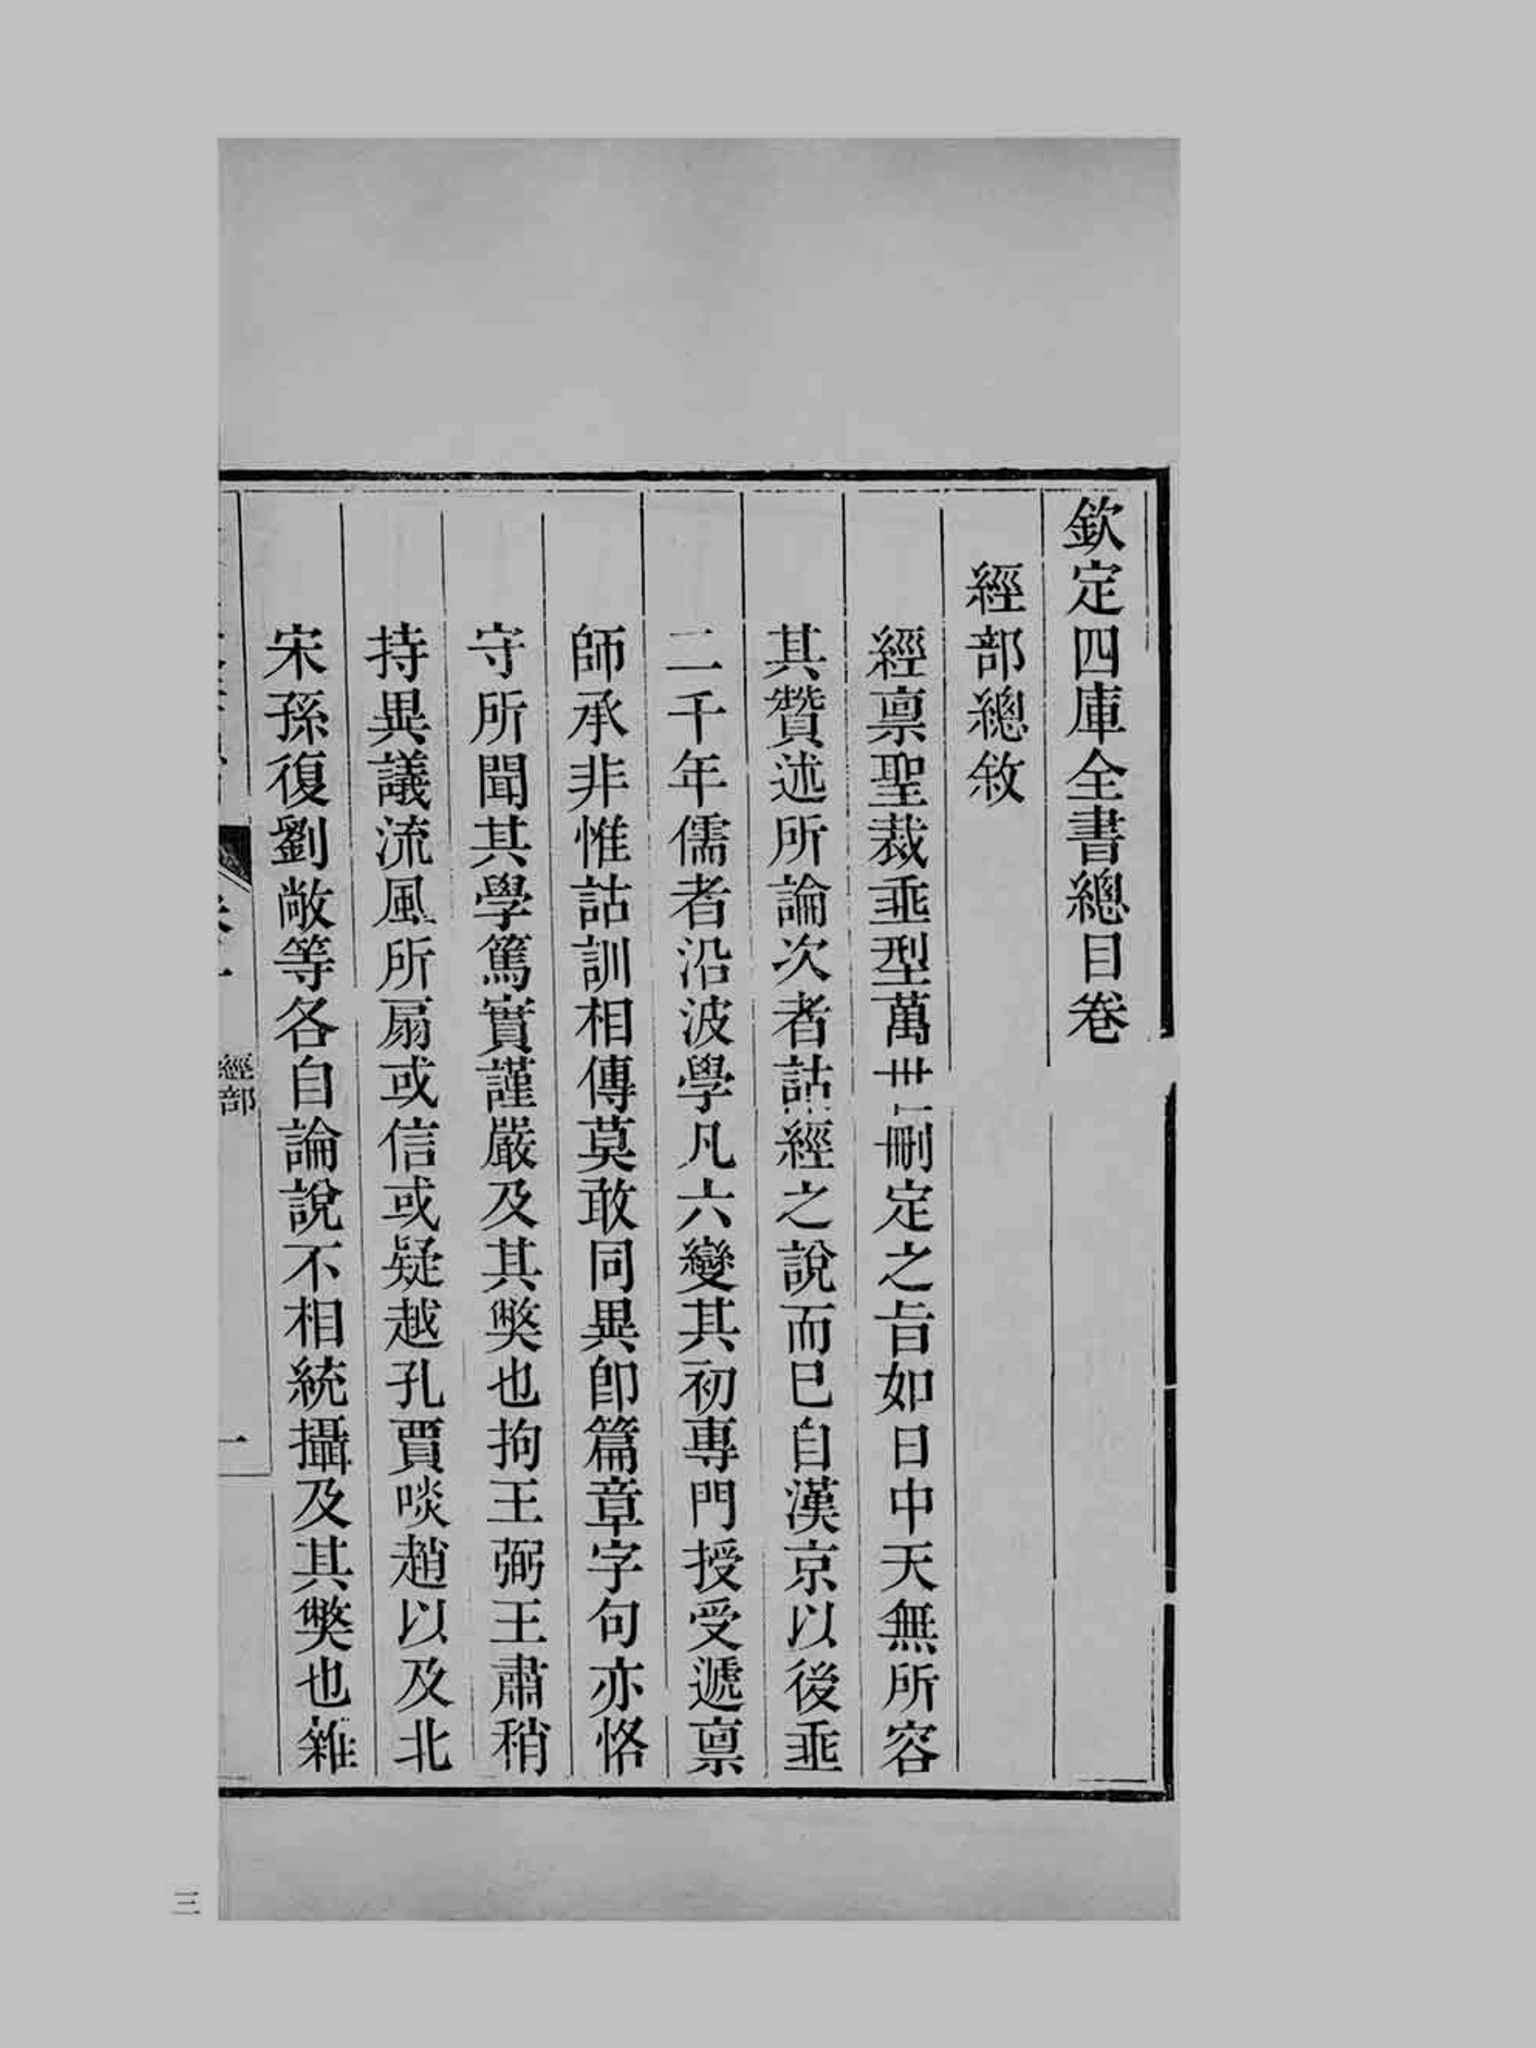 欽定四庫全書總目卷
經部總敘
經禀聖裁垂型萬世刪定之旨如日中天無所容
其贊述所論次者詁經之說而已自漢京以後垂
二千年儒者沿波學凡六變其初專門授受遞禀
師承非惟詁訓相傳莫敢同異卽篇章字句亦恪
守所聞其學篤實謹嚴及其弊也拘王弼王肅稍
持異議流風所扇或信或疑越孔賈啖趙以及北
宋孫復劉敞等各自論說不相統攝及其弊也雜
經部
一
三